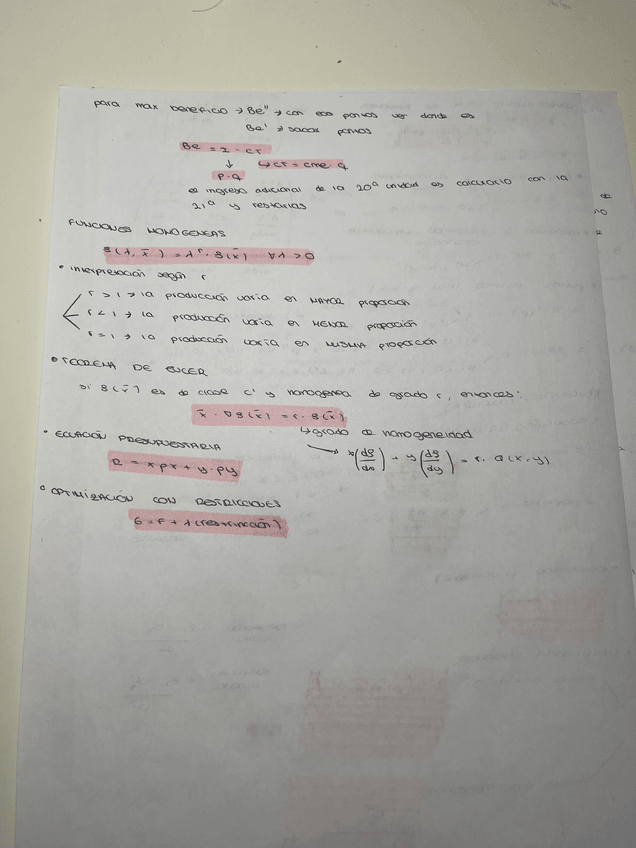 para max beneficio → Be'' → con esos puntos ver donde es
Be' → sacar puntos
Be = I - CT
↓ ↳ CT = cme · q
p · q
el ingreso adicional de la 20ª unidad es calcularlo con la
21ª y restarlas
FUNCIONES HOMOGENEAS
f(λ, x̄) = λ^r · f(x̄) ∀λ > 0
• Interpretación según r
r > 1 → la producción varia en MAYOR proporción
r < 1 → la producción varia en MENOR proporción
r = 1 → la producción varía en MISMA proporción
• TEOREMA DE EULER
Si f(x̄) es de clase C' y homogenea de grado r, entonces:
x̄ · ∇f(x̄) = r · f(x̄)
↳ grado de homogeneidad
• ECUACIÓN PRESUPUESTARIA
R = x px + y · py
→ x(df/dx) + y(df/dy) = r · Q(x,y)
• OPTIMIZACIÓN CON RESTRICCIONES
G = F + λ(restricción)
de